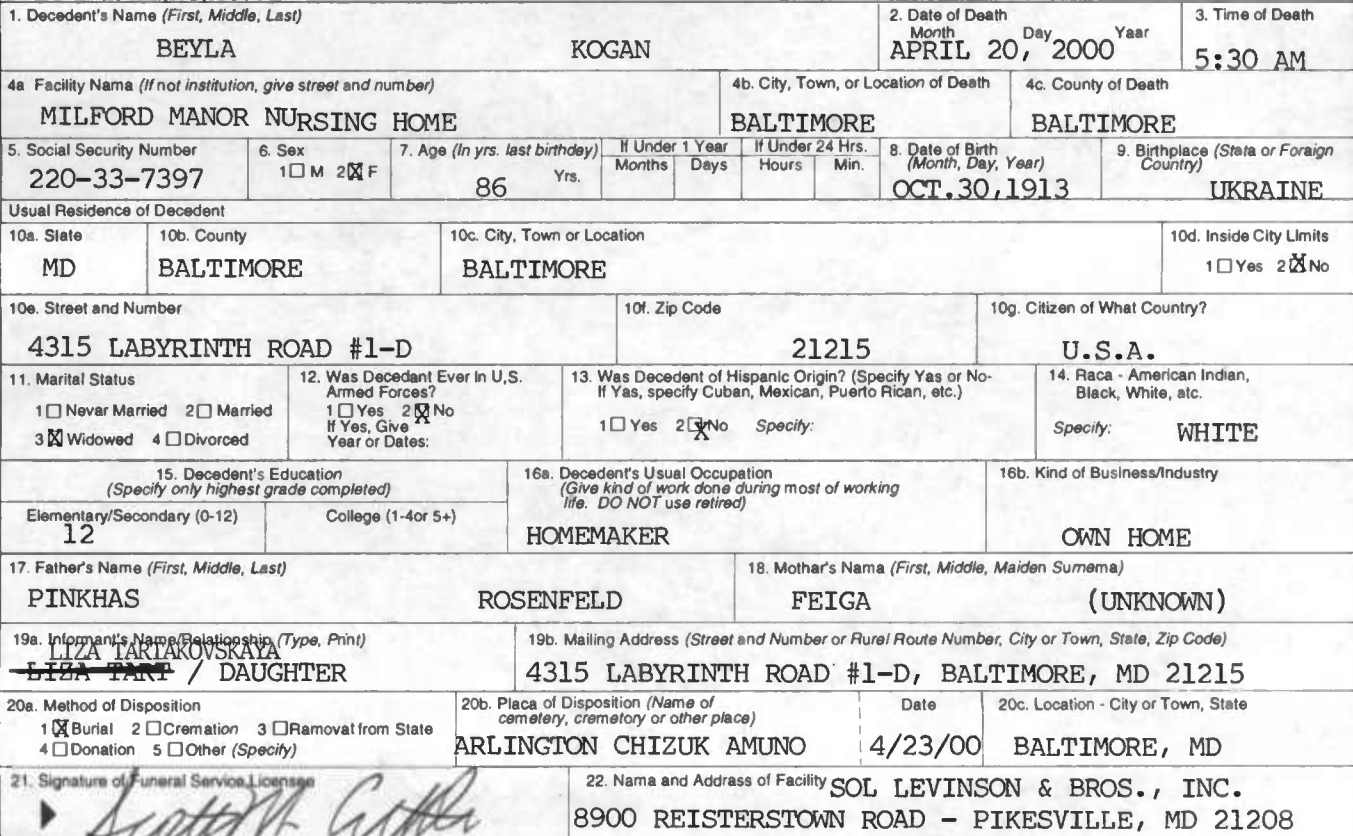 1. Decedent's Name (First, Middle, Last)
BEYLA KOGAN
2. Date of Death
Month Day Yaar
APRIL 20, 2000
3. Time of Death
5:30 AM
4a Facility Name (If not institution, give street and number)
MILFORD MANOR NURSING HOME
4b. City, Town, or Location of Death
BALTIMORE
4c. County of Death
BALTIMORE
5. Social Security Number
220-33-7397
6. Sex
1☐ M 2☒ F
7. Age (In yrs. last birthday)
86 Yrs.
If Under 1 Year
Months Days
If Under 24 Hrs.
Hours Min.
8. Date of Birth
(Month, Day, Year)
OCT.30,1913
9. Birthplace (Stata or Foraign
Country)
UKRAINE
Usual Rasidence of Decedent
10a. Slate
MD
10b. County
BALTIMORE
10c. City, Town or Location
BALTIMORE
10d. Inside City Limits
1☐Yes 2☒No
10e. Street and Number
4315 LABYRINTH ROAD #1-D
10f. Zip Code
21215
10g. Citizen of What Country?
U.S.A.
11. Marital Status
1☐ Nevar Married 2☐ Married
3☒ Widowed 4☐ Divorced
12. Was Decedant Ever In U,S.
Armed Forces?
1☐ Yes 2☒ No
If Yes, Give
Year or Dates:
13. Was Decedent of Hispanic Origin? (Specify Yas or No-
If Yas, specify Cuban, Mexican, Puerto Rican, etc.)
1☐ Yes 2☒No Specify:
14. Raca - American Indian,
Black, White, atc.
Specify: WHITE
15. Decedent's Education
(Specify only highest grade completed)
Elementary/Secondary (0-12)
12
College (1-4or 5+)
16a. Decedent's Usual Occupation
(Give kind of work done during most of working
life. DO NOT use retired)
HOMEMAKER
16b. Kind of Business/Industry
OWN HOME
17. Father's Name (First, Middle, Last)
PINKHAS ROSENFELD
18. Mothar's Nama (First, Middle, Maiden Surnema)
FEIGA (UNKNOWN)
19a. Informant's Name/Relationship (Type, Print)
LIZA TARTAKOVSKAYA
LIZA TART / DAUGHTER
19b. Mailing Address (Street and Number or Rural Route Number, City or Town, State, Zip Code)
4315 LABYRINTH ROAD #1-D, BALTIMORE, MD 21215
20a. Method of Disposition
1☒Burial 2☐Cremation 3☐Ramoval from State
4☐Donation 5☐Other (Specify)
20b. Placa of Disposition (Name of
cemetery, cremetory or other place)
ARLINGTON CHIZUK AMUNO
Date
4/23/00
20c. Location - City or Town, State
BALTIMORE, MD
21. Signature of Funeral Service Licensee
22. Nama and Addrass of Facility SOL LEVINSON & BROS., INC.
8900 REISTERSTOWN ROAD - PIKESVILLE, MD 21208